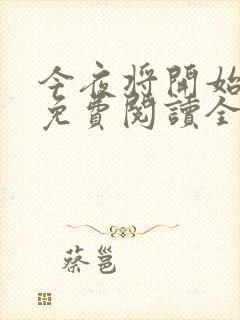 今夜将開始
免費閱讀全
蔡邕